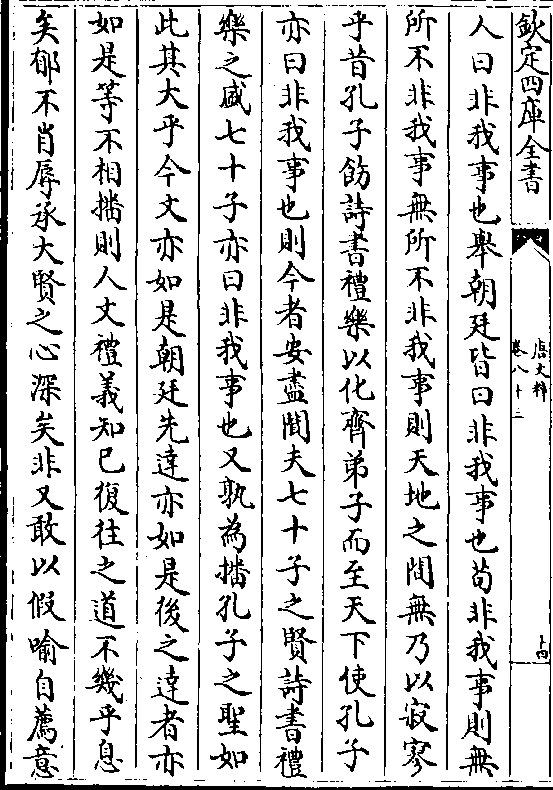 欽定四庫全書
唐文粹
卷八十三
十四
人曰非我事也舉朝廷皆曰非我事也苟非我事則無
所不非我事無所不非我事則天地之間無乃以寂寥
乎昔孔子飭詩書禮樂以化齊弟子而至天下使孔子
亦曰非我事也則今者安盡聞夫七十子之賢詩書禮
樂之盛七十子亦曰非我事也又孰為播孔子之聖如
此其大乎今文亦如是朝廷先達亦如是後之達者亦
如是等不相播則人文禮義知已復往之道不幾乎息
矣郁不肖辱承大賢之心深矣非又敢以假喻自薦意